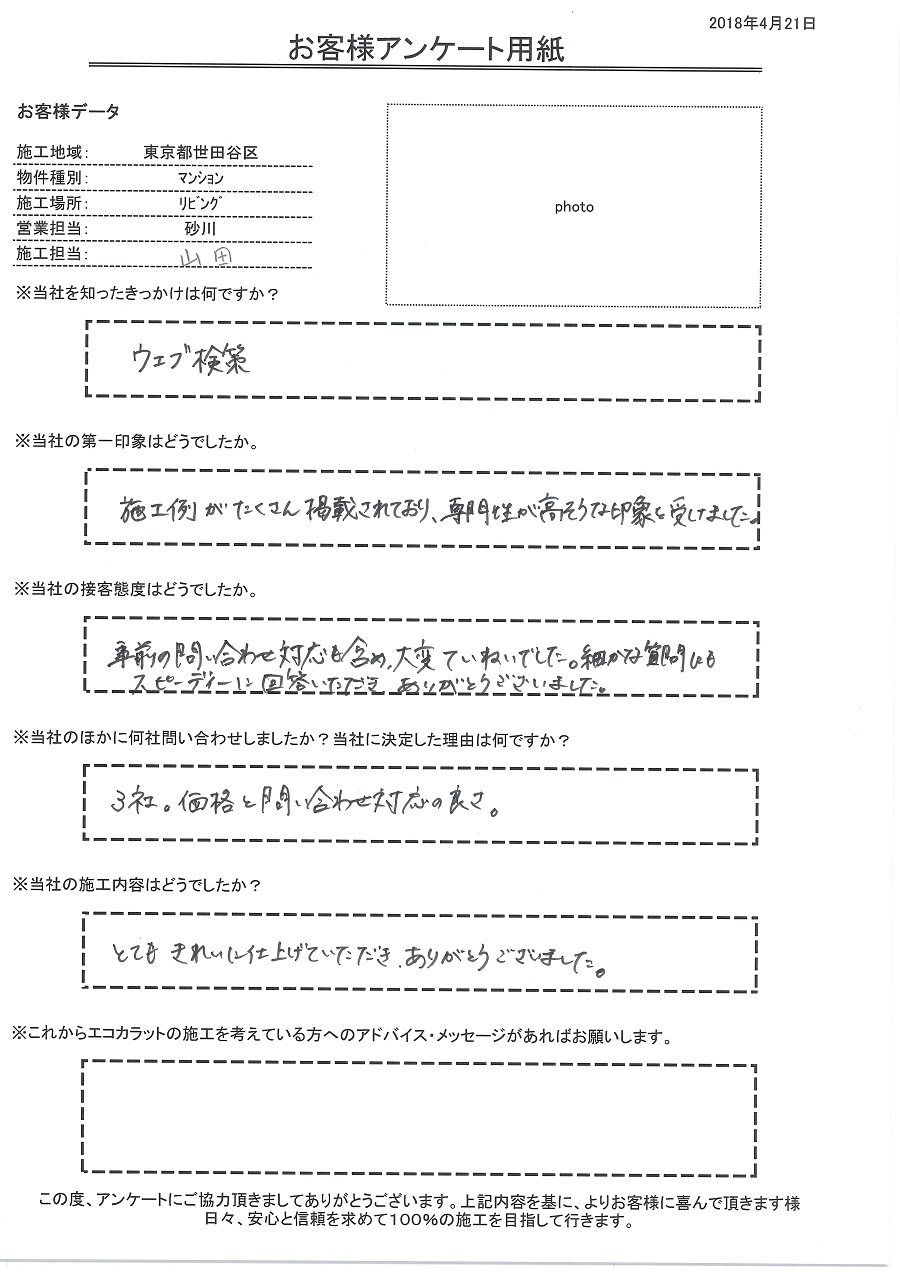 2018年4月21日
お客様アンケート用紙
お客様データ
施工地域： 東京都世田谷区
物件種別： ﾏﾝｼｮﾝ
施工場所： ﾘﾋﾞﾝｸﾞ
営業担当： 砂川
施工担当： 山田
photo
※当社を知ったきっかけは何ですか？
ウェブ検策
※当社の第一印象はどうでしたか。
施工例がたくさん掲載されており、専門性が高そうな印象を受けました。
※当社の接客態度はどうでしたか。
事前の問い合わせ対応も含め、大変ていねいでした。細かな質問にも
スピーディーに回答いただき ありがとうございました。
※当社のほかに何社問い合わせしましたか？当社に決定した理由は何ですか？
3社。価格と問い合わせ対応の良さ。
※当社の施工内容はどうでしたか？
とても きれいに仕上げていただき、ありがとうございました。
※これからエコカラットの施工を考えている方へのアドバイス・メッセージがあればお願いします。
この度、アンケートにご協力頂きましてありがとうございます。上記内容を基に、よりお客様に喜んで頂きます様
日々、安心と信頼を求めて100%の施工を目指して行きます。